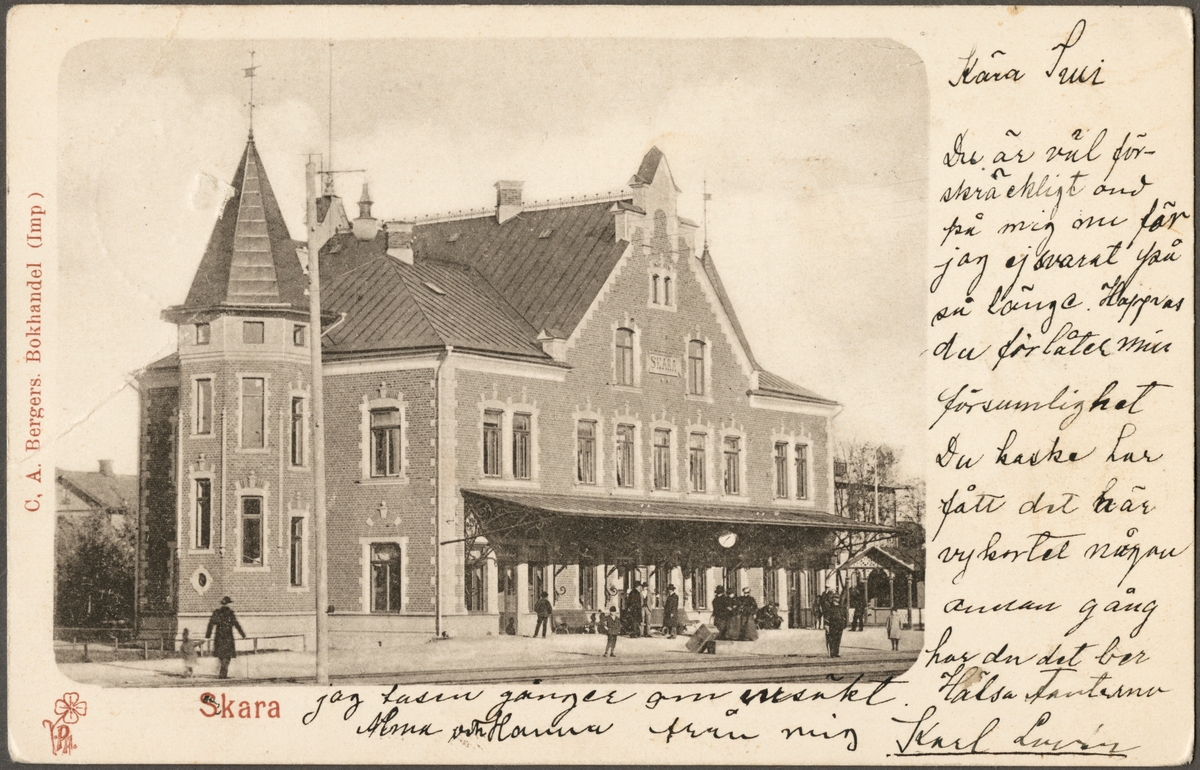 C, A. Bergers. Bokhandel (Imp)
SKARA
Kära
Du är väl för-
skräckligt ond
på mig nu för
jag ej svarat på
så länge. Hoppas
du förlåter min
försumlighet
Du kaske har
fått det här
vykortet någon
annan gång
har du det ber
jag tusen gånger om ursäkt. Hälsa tanterna
Alma och Hanna från mig
Karl
Skara